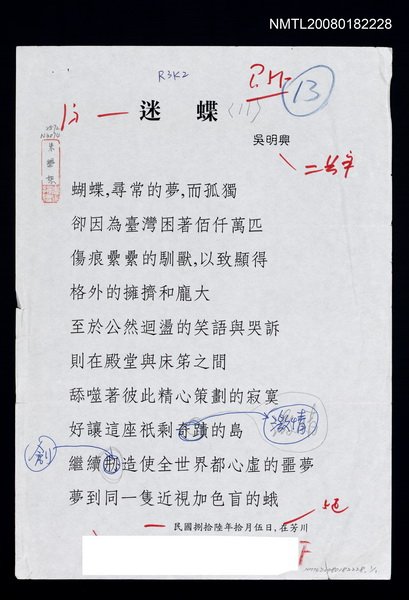 NMTL20080182228
R3K2
13
迷 蝶
(11)
吳明興
二岁字
蝴蝶,尋常的夢,而孤獨
卻因為臺灣困著佰仟萬匹
傷痕纍纍的馴獸,以致顯得
格外的擁擠和龐大
至於公然迴盪的笑語與哭訴
則在殿堂與床笫之間
舔噬著彼此精心策劃的寂寞
好讓這座祇剩奇蹟的島
激情
創
繼續捏造使全世界都心虛的噩夢
夢到同一隻近視加色盲的蛾
民國捌拾陸年拾月伍日,在芳川
NMTL20080182228